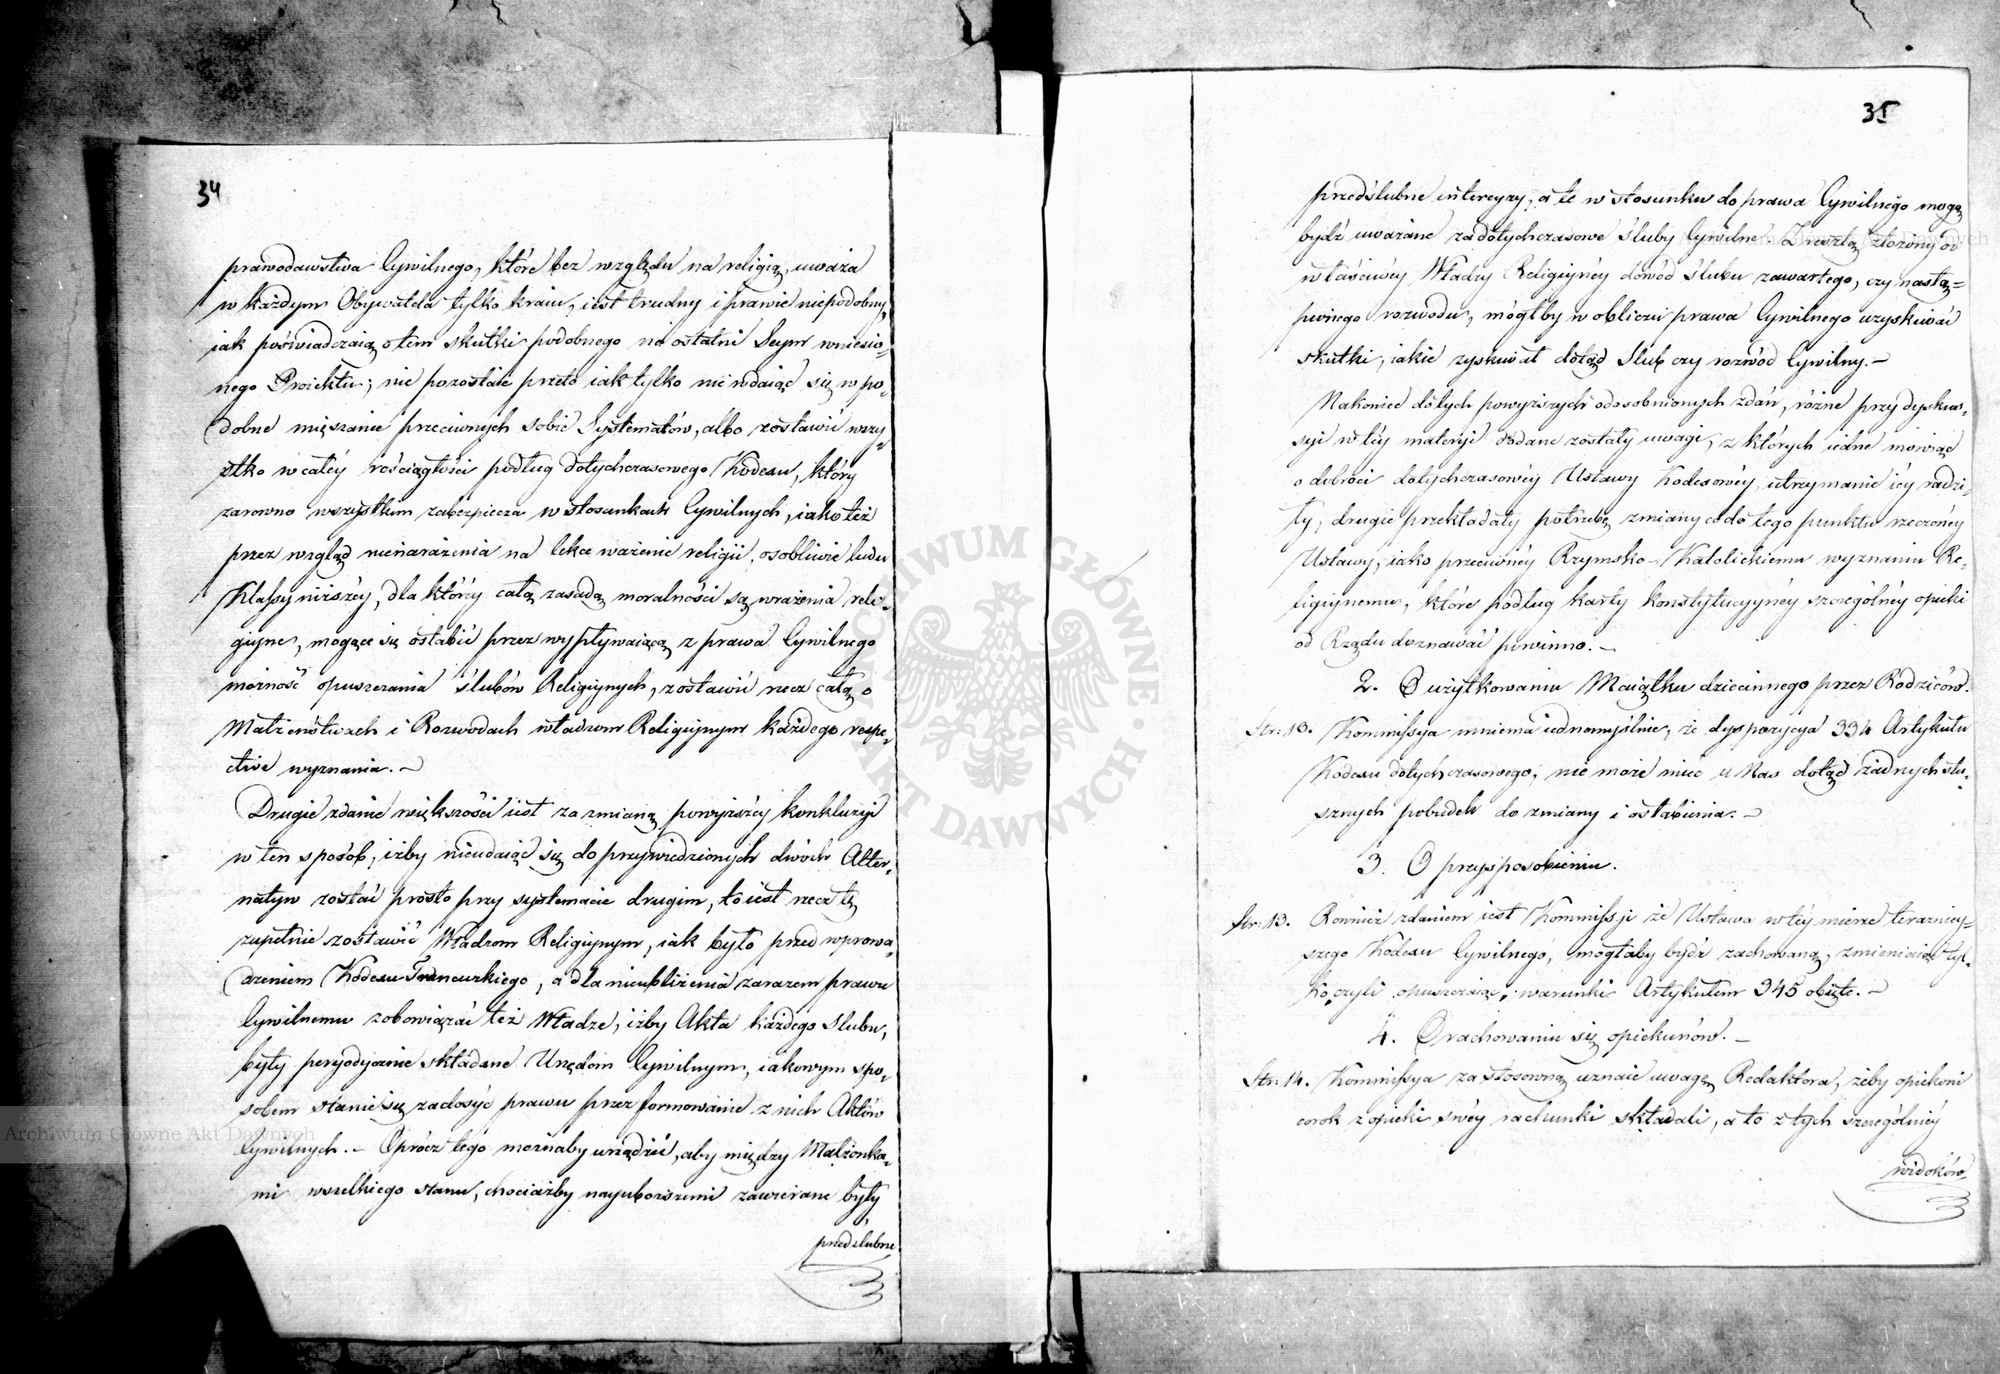 34
prawodawstwa Cywilnego, które bez względu na religią, uważa
w każdym Obywatela tylko kraiu, iest trudny i prawie niepodobny,
iak poświadczaią o tem skutki podobnego na ostatni Seym wniesio=
nego Proiektu; nie pozostaie przeto iak tylko nie wdaiąc się w po=
dobne mięszanie przeciwnych sobie Systematów, albo zostawić wszy=
stko w całéy rościągłości podług dotychczasowego Kodexu, który
zarowno wszystkim zabezpiecza w stosunkach Cywilnych, iako też
przez wzgląd nienarażenia na lekce ważenie religii, osobliwie ludu
Klassy niższéy, dla któréy całą zasadą moralności są wrażenia reli=
giyne, mogące się osłabić przez wypływaiącą z prawa Cywilnego
możność opuszczania ślubów Religiynych, zostawić rzecz całą o
Małżeństwach i Rozwodach władzom Religiynym każdego respe=
ctive wyznania. —
Drugie zdanie większości iest za zmianą powyższéy konkluzyi
w ten sposób, iżby nieudaiąc się do przywiedzionych dwóch Alter=
natyw zostać prosto przy systemacie drugim, to iest rzecz tę
zupełnie zostawić Władzom Religiynym, iak było przed wprowa=
dzeniem Kodexu Francuzkiego, a dla nieubliżenia zarazem prawu
Cywilnemu zobowiązać też Władze, iżby Akta każdego slubu,
były peryodycznie składane Urzędom Cywilnym, iakowym spo=
sobem stanie się zadosyć prawu przez formowanie z nich Aktów
Cywilnych. — Oprócz tego możnaby urządzić, aby między Małżonka=
mi wszelkiego stanu, chociażby nayuboższemi zawierane były
przedślubne
35
przedślubne intercyzy, a te w stosunku do prawa Cywilnego mogą
bydź uważane za dotychczasowe śluby Cywilne. Zresztą złożony od
właściwéy Władzy Religiynéy dowód ślubu zawartego, czy nastą=
pionego rozwodu, mógłby w obliczu prawa Cywilnego uzyskiwać
skutki, iakie zyskiwał dotąd Slub czy rozwód Cywilny. —
Nakoniec do tych powyższych odosobnionych zdań, różne przy dyskus=
syi w téy materyi dodane zostały uwagi, z których iedne mówiąc
o dobroci dotychczasowéy Ustawy Kodexowéy, utrzymanie iéy radzi=
ły, drugie przekładały potrzebę zmiany co do tego punktu rzeczonéy
Ustawy, iako przeciwnéy Rzymsko-Katolickiemu wyznaniu Re=
ligiynemu, które podług karty konstytucyynéy szczególnéy opieki
od Rządu doznawać powinno. —
2. O użytkowaniu Maiątku dziecinnego przez Rodziców.
Str: 13. Kommissya mniema iednomyślnie, że dyspozycya 334 Artykułu
Kodexu dotychczasowego, nie może miec u Nas dotąd żadnych słu=
sznych pobudek do zmiany i osłabienia. —
3. O przysposobieniu.
Str: 13. Rownież zdaniem iest Kommissyi że Ustawa w téy mierze teraznieý=
szego Kodexu Cywilnego, mogłaby bydź zachowaną, zmieniaiąc tyl=
ko, czyli opuszczaiąc, warunki Artykułem 345 obięte. —
4. O rachowaniu się opiekunów. —
Str: 14. Kommissya za stósowną uznaie uwagę Redaktora, żeby opiekuni
corok z opieki swéy rachunki składali, a to z tych szczególniéy
widoków
ARCHIWUM GŁÓWNE AKT DAWNYCH
Archiwum Główne Akt Dawnych